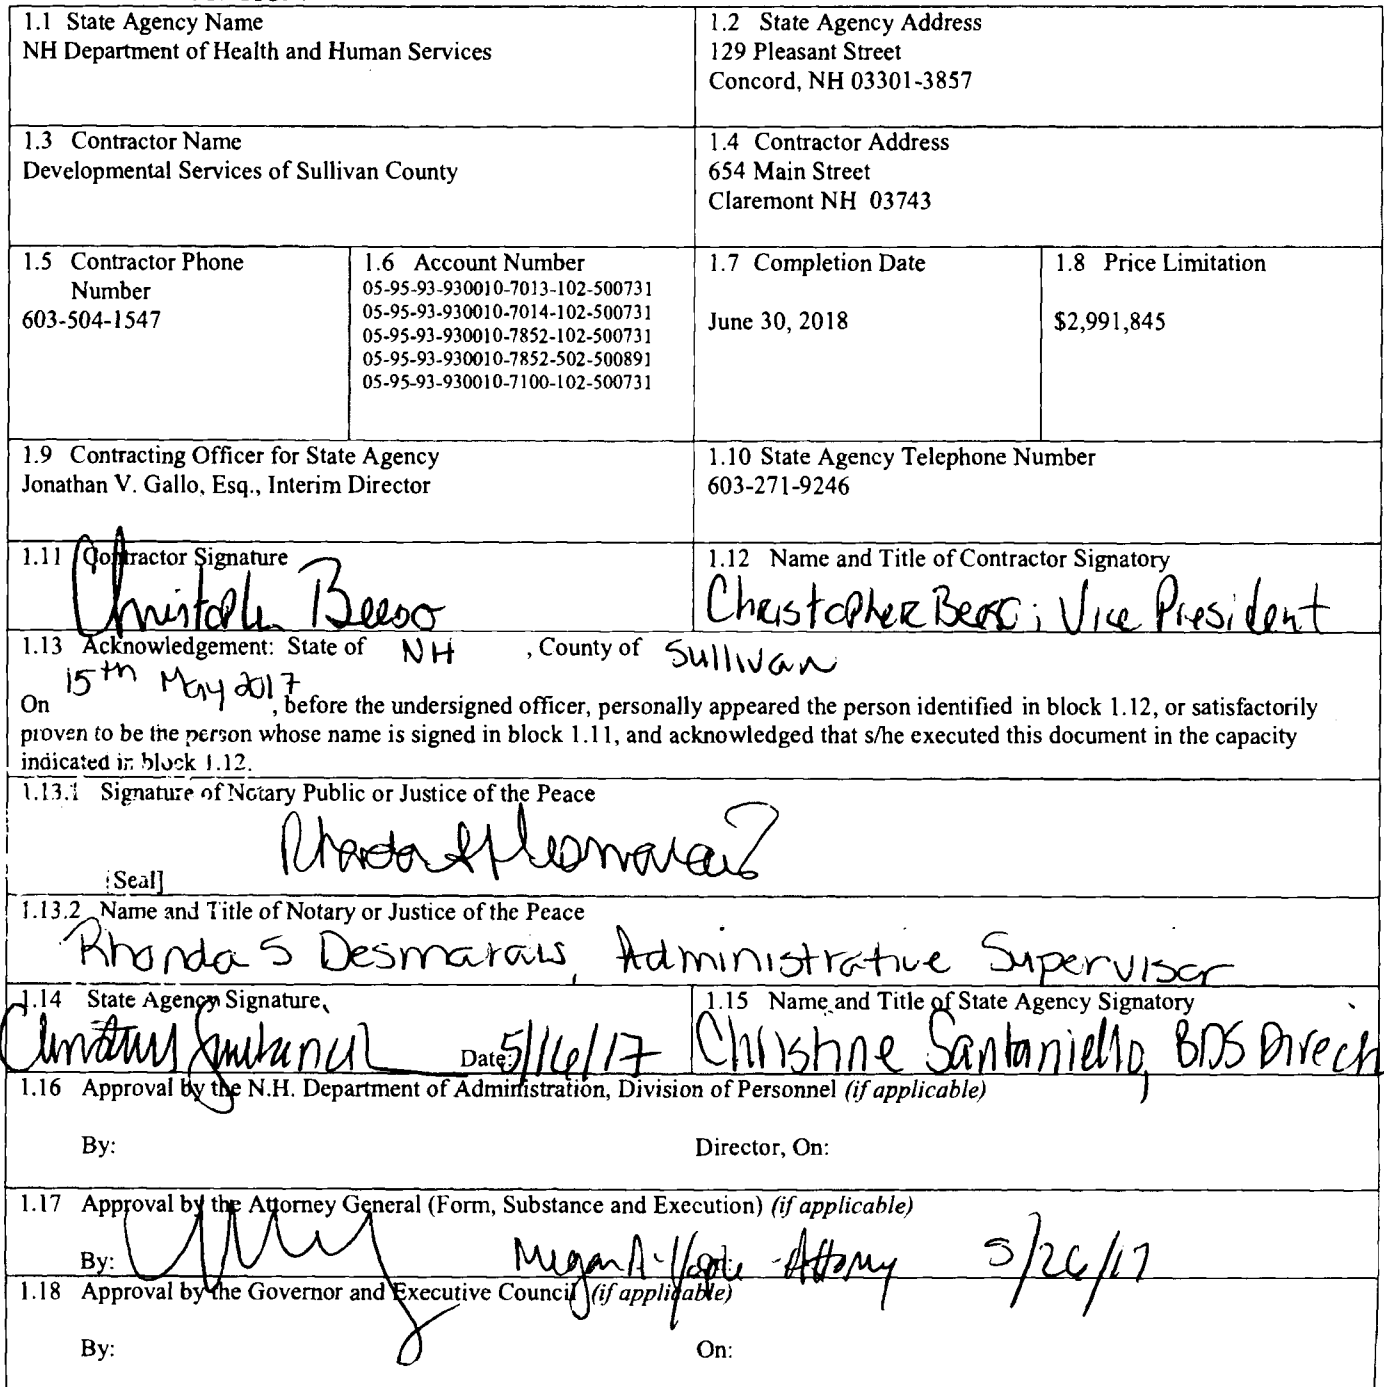 1.1 State Agency Name
NH Department of Health and Human Services
1.2 State Agency Address
129 Pleasant Street
Concord, NH 03301-3857
1.3 Contractor Name
Developmental Services of Sullivan County
1.4 Contractor Address
654 Main Street
Claremont NH 03743
1.5 Contractor Phone
Number
603-504-1547
1.6 Account Number
05-95-93-930010-7013-102-500731
05-95-93-930010-7014-102-500731
05-95-93-930010-7852-102-500731
05-95-93-930010-7852-502-500891
05-95-93-930010-7100-102-500731
1.7 Completion Date
June 30, 2018
1.8 Price Limitation
$2,991,845
1.9 Contracting Officer for State Agency
Jonathan V. Gallo, Esq., Interim Director
1.10 State Agency Telephone Number
603-271-9246
1.11 Contractor Signature
1.12 Name and Title of Contractor Signatory
Christopher Vice President
1.13 Acknowledgement: State of NH , County of Sullivan
On 15th May 2017, before the undersigned officer, personally appeared the person identified in block 1.12, or satisfactorily
proven to be the person whose name is signed in block 1.11, and acknowledged that s/he executed this document in the capacity
indicated in block 1.12.
1.13.1 Signature of Notary Public or Justice of the Peace
[Seal]
1.13.2 Name and Title of Notary or Justice of the Peace
Rhonda S Desmarais, Administrative Supervisor
1.14 State Agency Signature
Date: 5/16/17
1.15 Name and Title of State Agency Signatory
Christine Santaniello, BDS Director
1.16 Approval by the N.H. Department of Administration, Division of Personnel (if applicable)
By:
Director, On:
1.17 Approval by the Attorney General (Form, Substance and Execution) (if applicable)
By: Megan A. - Attorney 5/26/17
1.18 Approval by the Governor and Executive Council (if applicable)
By:
On: